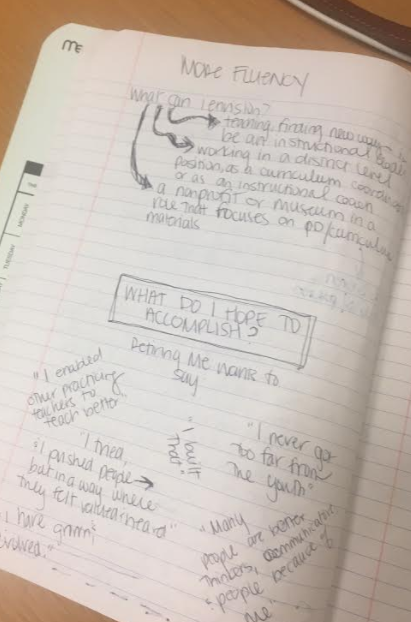 ME
MORE FLUENCY
What can I envision?
teaching, finding new ways
be an instructional
working in a district level
position, as a curriculum
or as an instructional coach
a nonprofit or museum in a
role that focuses on PD/curriculum
materials
WHAT DO I HOPE TO
ACCOMPLISH?
Retiring Me wants to
say
"I enabled
other practicing
teachers to
teach better"
"I built
that"
"I never got
too far from
the youth"
"I tried,
"I pushed people →
but in a way where
they felt valued + heard"
"Many
people are better
thinkers, communicators
people because of
me"
I have
TUESDAY
MONDAY